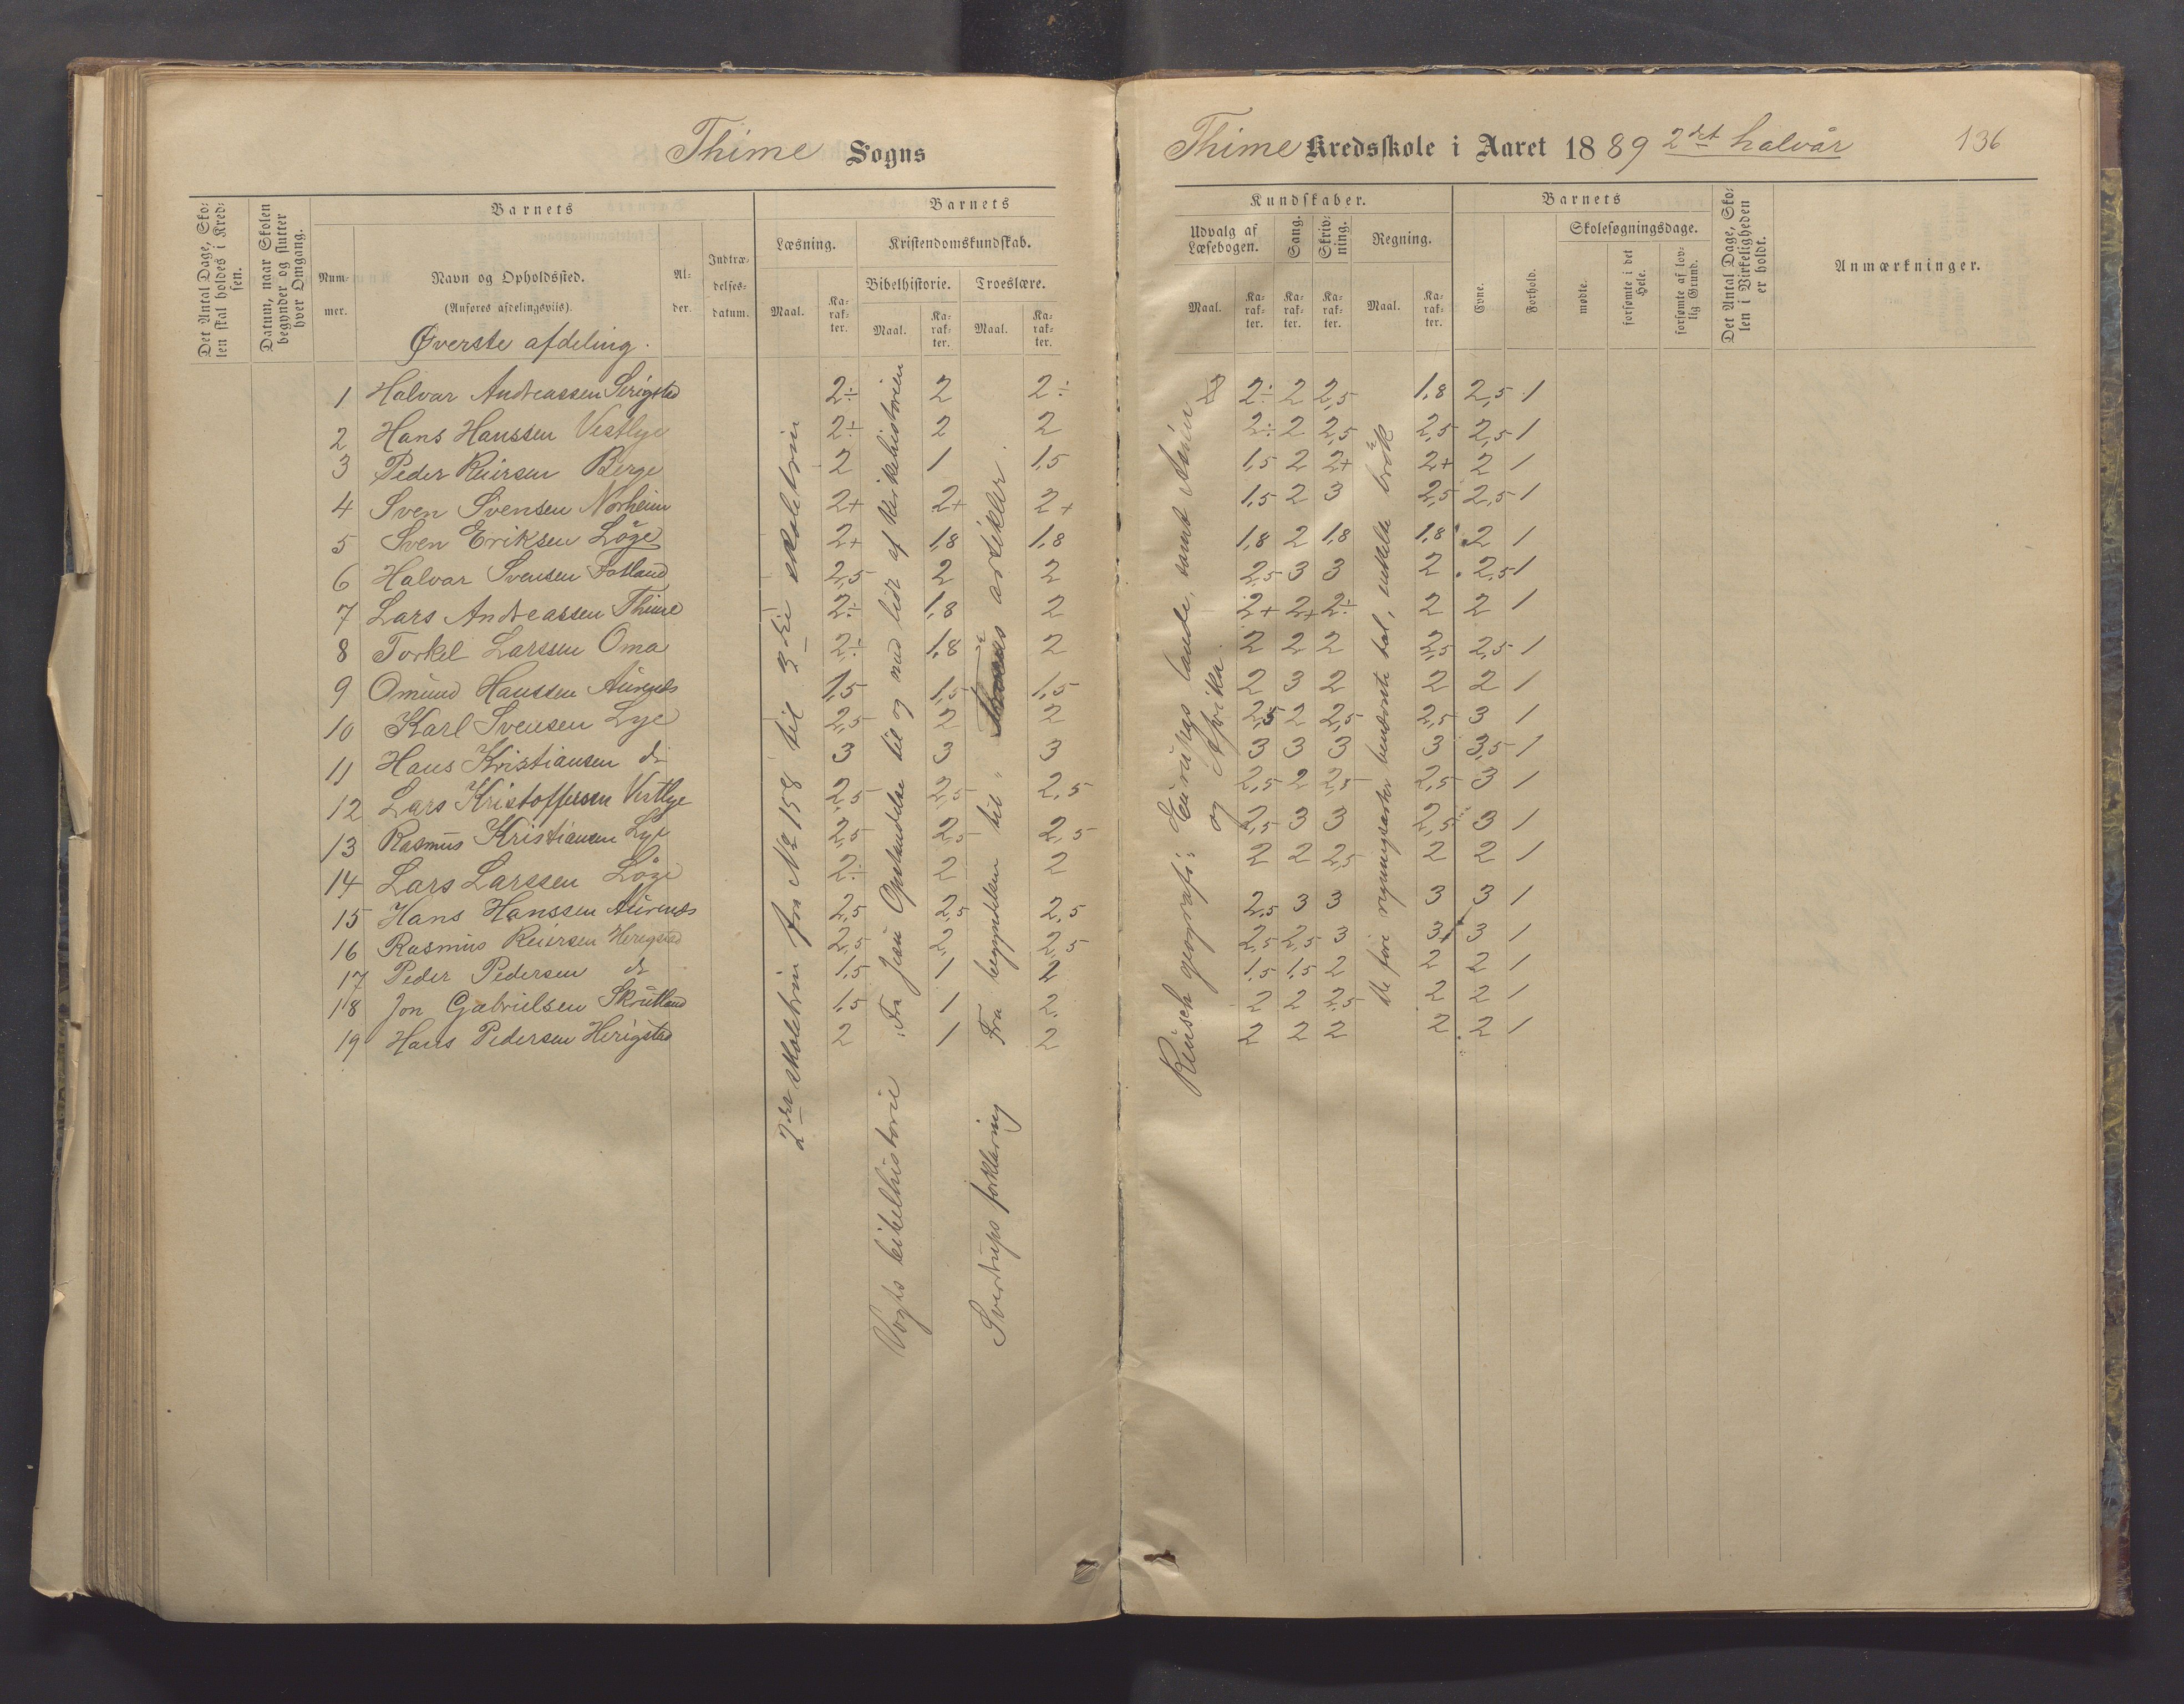 Thime Sogns
Det Antal Dage, Sko-
len skal holdes i Kred-
sen.
Datum, naar Skolen
begynder og slutter
hver Omgang.
Barnets
Num-
mer.
Navn og Opholdssted.
(Anføres afdelingsviis).
Al-
der.
Indtræ-
delses-
datum.
Barnets
Læsning.
Kristendomskundskab.
Bibelhistorie.
Troeslære.
Maal.
Ka-
rak-
ter.
Maal.
Ka-
rak-
ter.
Maal.
Ka-
rak-
ter.
Øverste afdeling.
1 Halvar Andreassen Serigstad 2÷ 2 2÷
2 Hans Hanssen Vestlye 2÷ 2 2
3 Peder Reiersen Berge 2 1 1,5
4 Sven Svensen Norheim 2+ 2+ 2+
5 Sven Eriksen Löge 2+ 1,8 1,8
6 Halvar Svensen Fotland 2,5 2 2
7 Lars Andreassen Thime 2÷ 1,8 2
8 Torkel Larssen Oma 2÷ 1,8 2
9 Omund Hanssen Aurenes 1,5 1,5 1,5
10 Karl Svensen Lye 2,5 2 2
11 Hans Kristiansen do 3 3 3
12 Lars Kristoffersen Vestlye 2,5 2,5 2,5
13 Rasmus Kristiansen Lye 2,5 2,5 2,5
14 Lars Larssen Löge 2÷ 2 2
15 Hans Hanssen Aurenes 2,5 2,5 2,5
16 Rasmus Reiersen Herigstad 2,5 2 2,5
17 Peder Pedersen do 1,5 1 2
18 Jon Gabrielsen Skrutland 1,5 1 2
19 Hans Pedersen Herigstad 2 1 2
2det skoletrin fra No 158 til 3die skoletrin
Vogts bibelhistorie. Fra Jesu Opstandelse til og med lidt af kirkehistorien
Sverdrups forklaring Fra begyndelsen til artikler.
Thime Kredsskole i Aaret 1889 2det halvår
136
Kundskaber.
Udvalg af
Læsebogen.
Sang.
Skriv-
ning.
Regning.
Maal.
Ka-
rak-
ter.
Ka-
rak-
ter.
Ka-
rak-
ter.
Maal.
Ka-
rak-
ter.
Barnets
Evne.
Forhold.
Skolesøgningsdage.
mødte.
forsømte i det
Hele.
forsømte af lov-
lig Grund.
Det Antal Dage, Sko-
len i Virkeligheden
er holdt.
Anmærkninger.
2÷ 2 2,5 1,8 2,5 1
2÷ 2 2,5 2,5 2,5 1
1,5 2 2+ 2+ 2 1
1,5 2 3 2,5 2,5 1
1,8 2 1,8 1,8 2 1
2,5 3 3 2 2,5 1
2+ 2+ 2÷ 2 2 1
2 2 2 2,5 2,5 1
2 3 2 2 2 1
2,5 2 2,5 2,5 3 1
3 3 3 3 3,5 1
2,5 2 2,5 2,5 3 1
2,5 3 3 2,5 3 1
2 2 2,5 2 2 1
2,5 3 3 3 3 1
2,5 2,5 3 3+ 3 1
1,5 1,5 2 2 2 1
2 2 2,5 2 2 1
2 2 2 2 2 1
Reusch geografi: Europas lande, samt Asien
og Afrika.
De fire regningsarter benævnte tal, enkelte brök